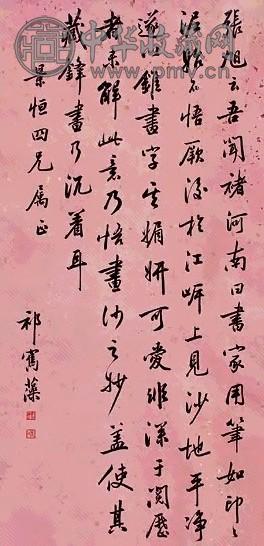 中华收藏网
www.pmv.cn
張旭云吾聞褚河南曰書家用筆如印〻
泥始不悟厥後於江岍上見沙地平净
遂錐畫字其媚妍可愛非深于閱歷
者未解此意乃悟畫沙之妙蓋使其
藏鋒畫乃沉着耳
景恒四兄属正
祁寯藻